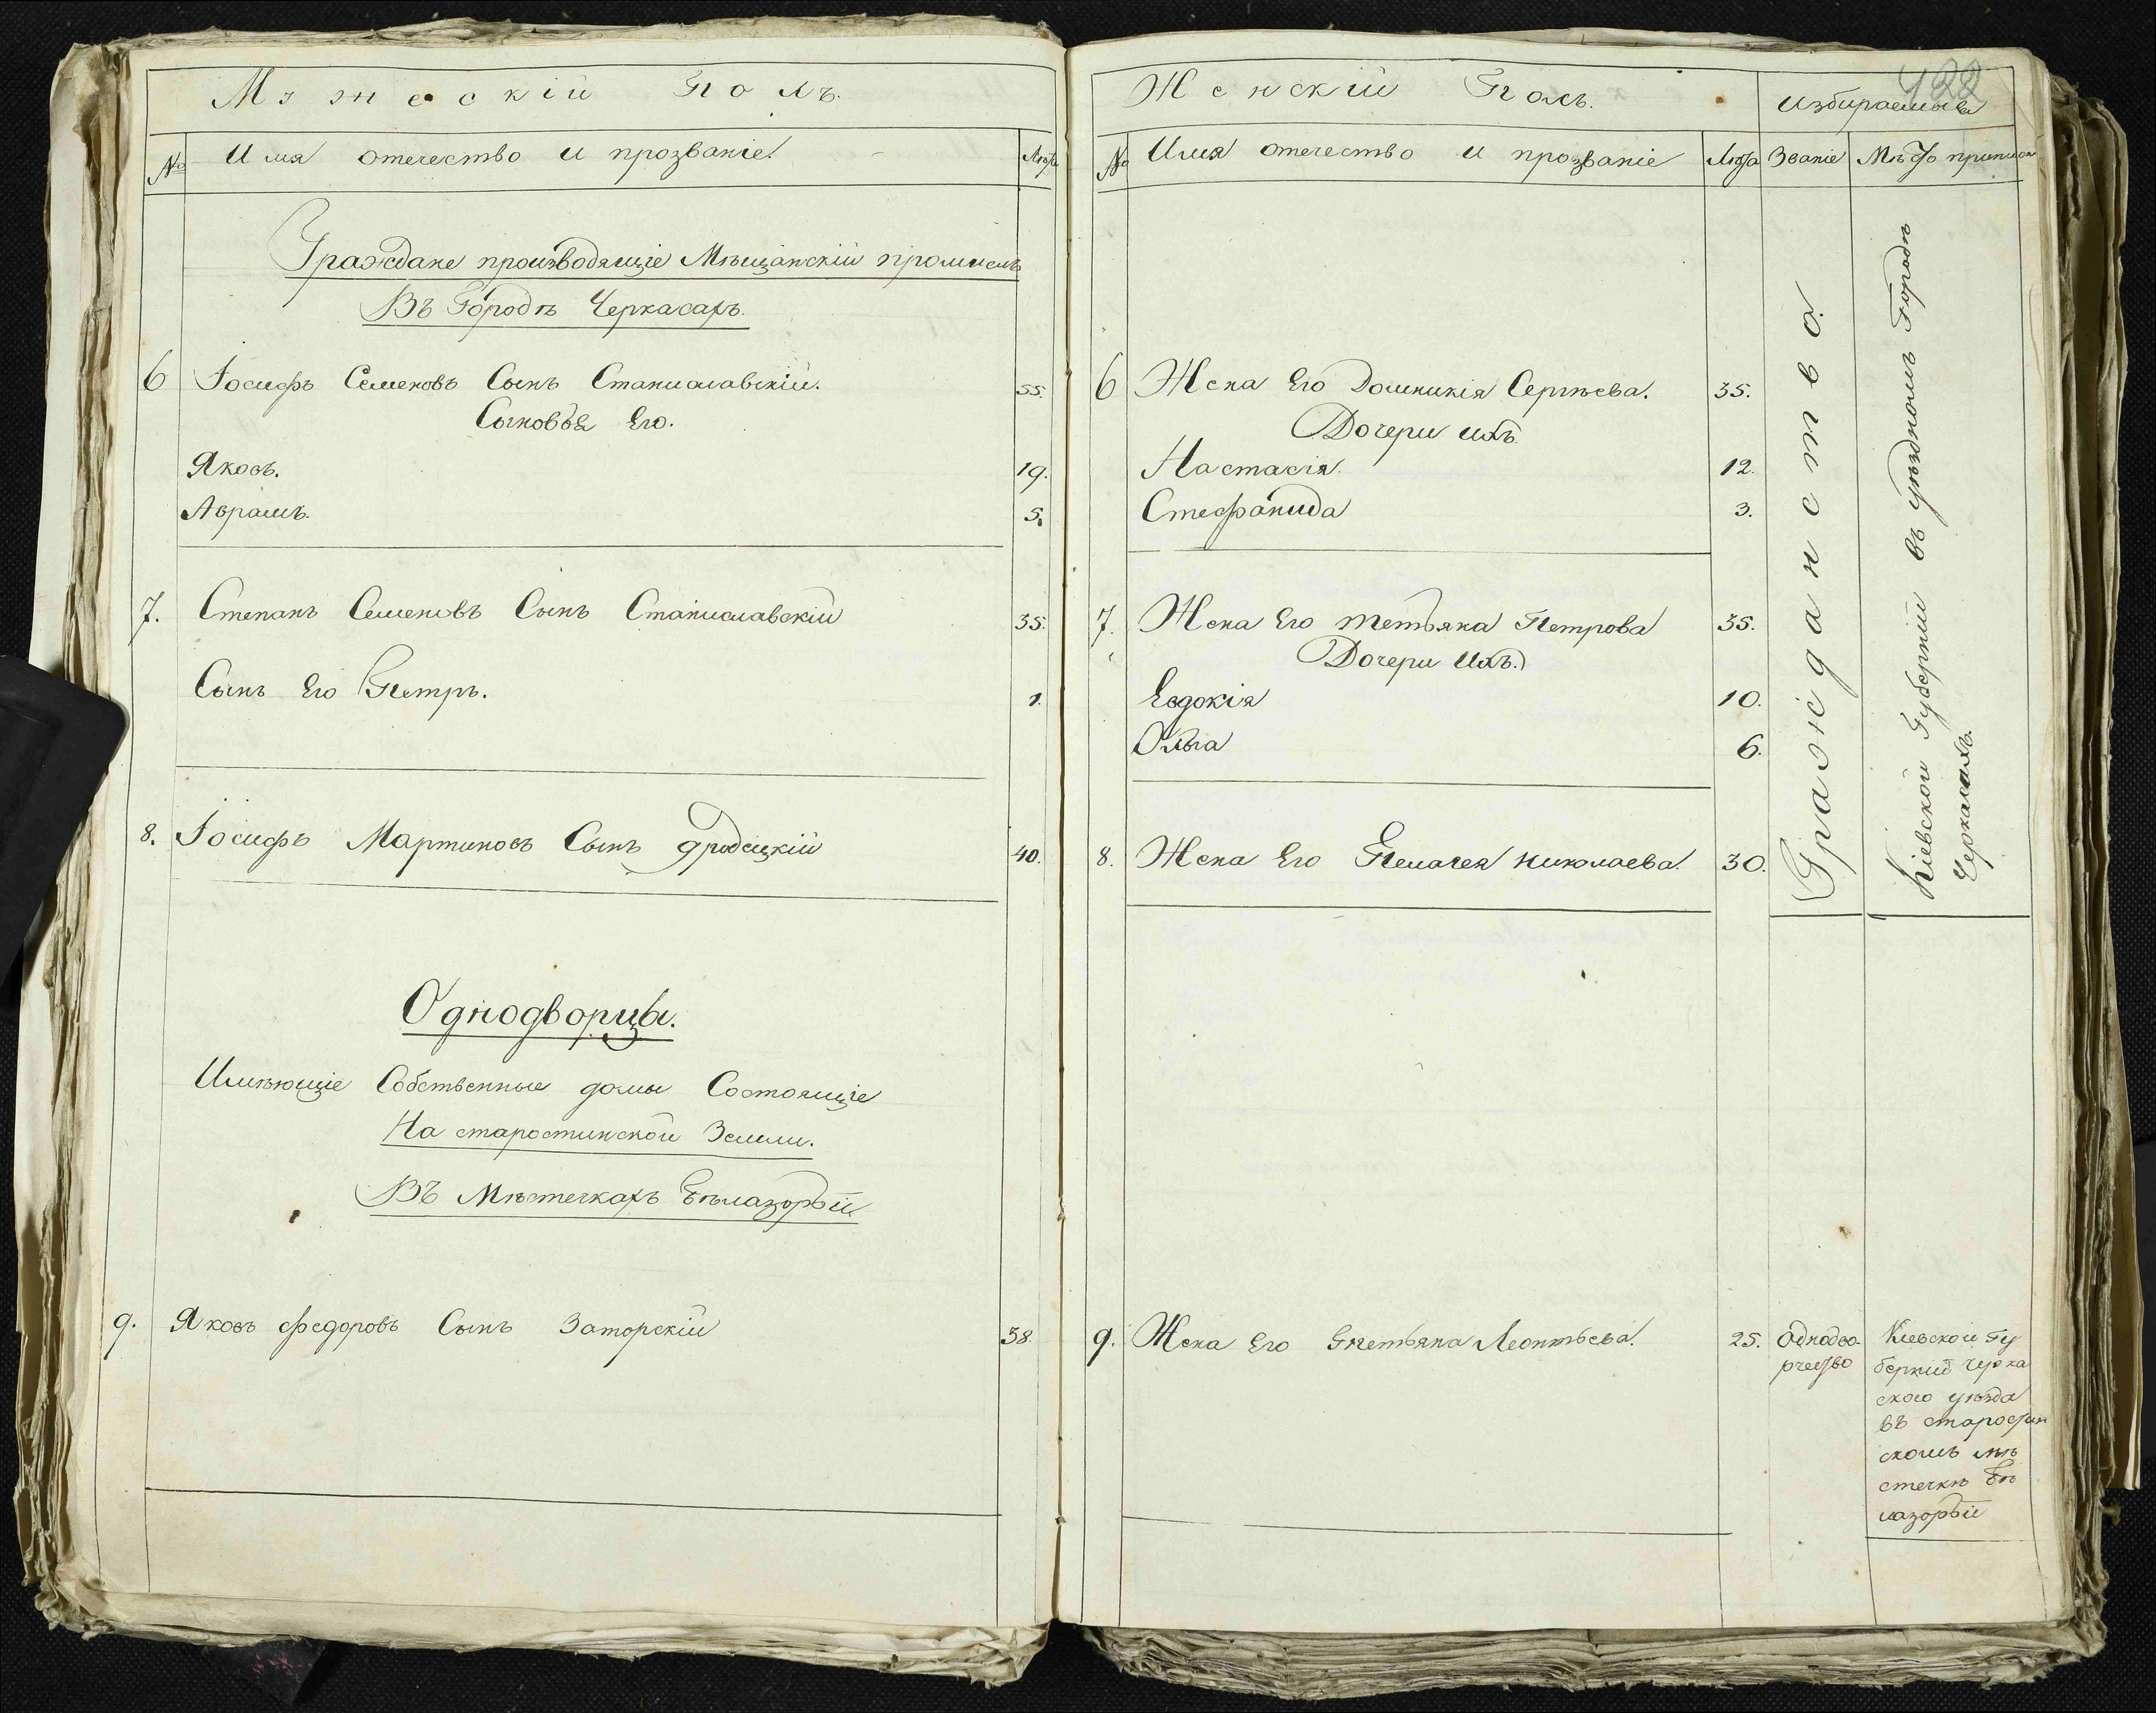 Мужескій Полъ.
№ Имя отечество и прозваніе. Лѣта
Граждане производящіе Мѣщанскій промыслъ
Въ Городѣ Черкасахъ.
6 Іосифъ Семеновъ Сынъ Станиславскій. 55.
Сыновья Его.
Яковъ. 19.
Аврамъ. 5.
7. Степанъ Семеновъ Сынъ Станиславскій 35.
Сынъ Его Петръ. 1.
8. Іосифъ Мартиновъ Сынъ Гродецкій 40.
Однодворцы.
Имѣющіе Собственные домы Состоящіе
На старостинской Земли.
Въ Мѣстечкахъ Бѣлазорьіи
9. Яковъ Федоровъ Сынъ Заторскій 38.
422
Женскій Полъ. Избираемыя
№ Имя отечество и прозваніе Лѣта Званіе Мѣсто приписки
6 Жена Его Домникія Сергѣева. 35.
Дочери ихъ
Настасія. 12.
Стефанида 3.
7. Жена Его Тетьяна Петрова 35.
Дочери Ихъ.
Евдокія 10.
Ольга 6.
8. Жена Его Пелагея Николаева. 30.
Гражданство.
Кіевской Губерніи въ уѣздномъ Городѣ
Черкасахъ.
9. Жена Его Тетьяна Леонтьева. 25. Однодво-
рчество
Киевской Гу
берніи Черка
ского уѣзда
въ старостин
скомъ мѣ
стечкѣ Бѣ
лазорьіи